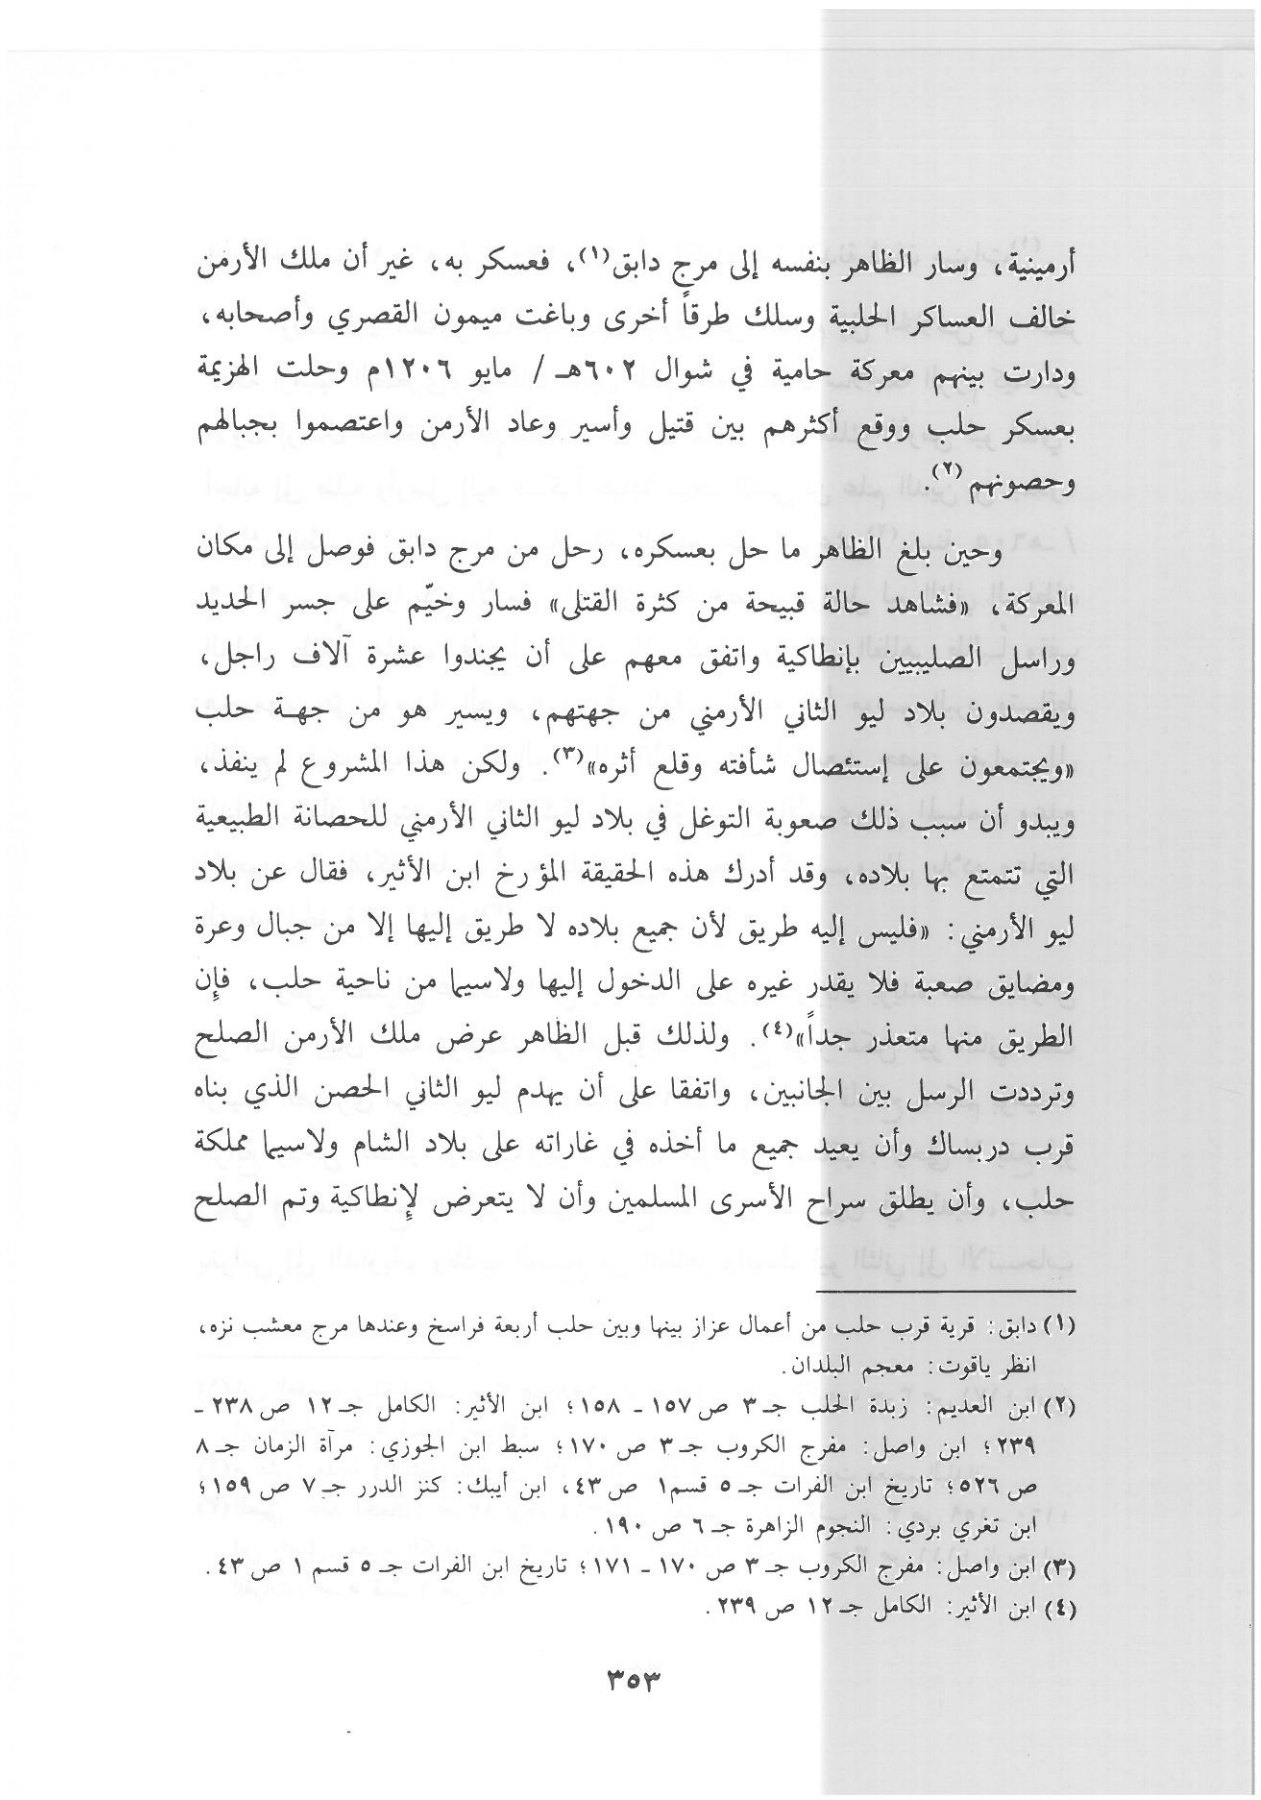 أرمينية، وسار الظاهر بنفسه إلى مرج دابق(١)، فعسكر به، غير أن ملك الأرمن
خالف العساكر الحلبية وسلك طرقاً أخرى وباغت ميمون القصري وأصحابه،
ودارت بينهم معركة حامية في شوال ٦٠٢هـ / مايو ١٢٠٦م وحلت الهزيمة
بعسكر حلب ووقع أكثرهم بين قتيل وأسير وعاد الأرمن واعتصموا بجبالهم
وحصونهم(٢).
وحين بلغ الظاهر ما حل بعسكره، رحل من مرج دابق فوصل إلى مكان
المعركة، «فشاهد حالة قبيحة من كثرة القتلى» فسار وخيّم على جسر الحديد
وراسل الصليبيين بإنطاكية واتفق معهم على أن يجندوا عشرة آلاف راجل،
ويقصدون بلاد ليو الثاني الأرمني من جهتهم، ويسير هو من جهـة حلب
«ويجتمعون على إستئصال شأفته وقلع أثره»(٣). ولكن هذا المشروع لم ينفذ،
ويبدو أن سبب ذلك صعوبة التوغل في بلاد ليو الثاني الأرمني للحصانة الطبيعية
التي تتمتع بها بلاده، وقد أدرك هذه الحقيقة المؤرخ ابن الأثير، فقال عن بلاد
ليو الأرمني: «فليس إليه طريق لأن جميع بلاده لا طريق إليها إلا من جبال وعرة
ومضايق صعبة فلا يقدر غيره على الدخول إليها ولاسيما من ناحية حلب، فإن
الطريق منها متعذر جداً»(٤). ولذلك قبل الظاهر عرض ملك الأرمن الصلح
وترددت الرسل بين الجانبين، واتفقا على أن يهدم ليو الثاني الحصن الذي بناه
قرب دربساك وأن يعيد جميع ما أخذه في غاراته على بلاد الشام ولاسيما مملكة
حلب، وأن يطلق سراح الأسرى المسلمين وأن لا يتعرض لإنطاكية وتم الصلح
(١) دابق: قرية قرب حلب من أعمال عزاز بينها وبين حلب أربعة فراسخ وعندها مرج معشب نزه،
انظر ياقوت: معجم البلدان.
(٢) ابن العديم: زبدة الحلب جـ٣ ص١٥٧ ـ ١٥٨؛ ابن الأثير: الكامل جـ١٢ ص٢٣٨ ـ
٢٣٩؛ ابن واصل: مفرج الكروب جـ٣ ص١٧٠؛ سبط ابن الجوزي: مرآة الزمان جـ٨
ص٥٢٦؛ تاريخ ابن الفرات جـ٥ قسم١ ص٤٣، ابن أيبك: كنز الدرر جـ٧ ص١٥٩؛
ابن تغري بردي: النجوم الزاهرة جـ٦ ص١٩٠.
(٣) ابن واصل: مفرج الكروب جـ٣ ص١٧٠ ـ ١٧١؛ تاريخ ابن الفرات جـ٥ قسم ١ ص٤٣.
(٤) ابن الأثير: الكامل جـ١٢ ص٢٣٩.
٣٥٣